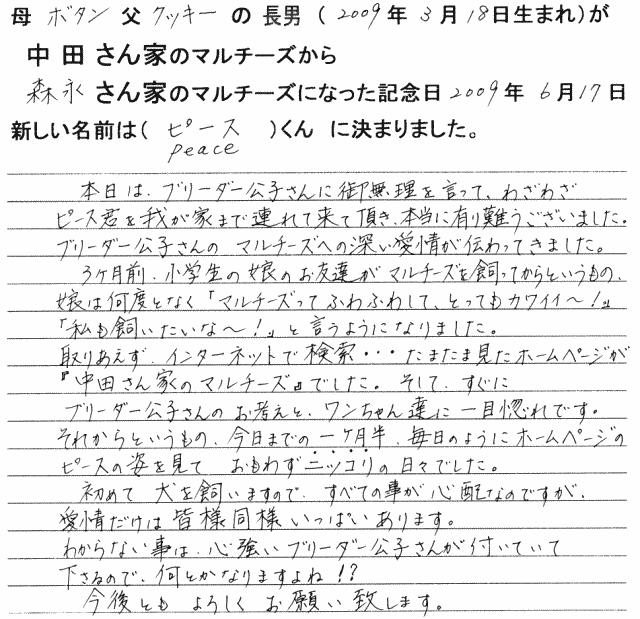 母 ボタン 父 クッキー の 長男 ( 2009年 3月 18日生まれ)が
中田さん家のマルチーズから
森永さん家のマルチーズになった記念日 2009年 6月17日
新しい名前は( ピース )くん に決まりました。
peace
本日は、ブリーダー公子さんに御無理を言って、わざわざ
ピース君を我が家まで連れて来て頂き、本当に有り難うございました。
ブリーダー公子さんの マルチーズへの深い愛情が伝わってきました。
3ヶ月前、小学生の娘のお友達がマルチーズを飼ってからというもの、
娘は何度となく「マルチーズって ふわふわして、とってもカワイイ〜!」
「私も飼いたいな〜!」と言うようになりました。
取りあえず、インターネットで検索・・・たまたま見たホームページが
『中田さん家のマルチーズ』でした。そして、すぐに
ブリーダー公子さんのお考えと、ワンちゃん達に一目惚れです。
それからというもの、今日までの一ヶ月半、毎日のようにホームページの
ピースの姿を見て おもわずニッコリの日々でした。
初めて 犬を飼いますので、すべての事が心配なのですが、
愛情だけは皆様同様いっぱいあります。
わからない事は、心強いブリーダー公子さんが付いていて
下さるので、何とかなりますよね!?
今後とも よろしくお願い致します。